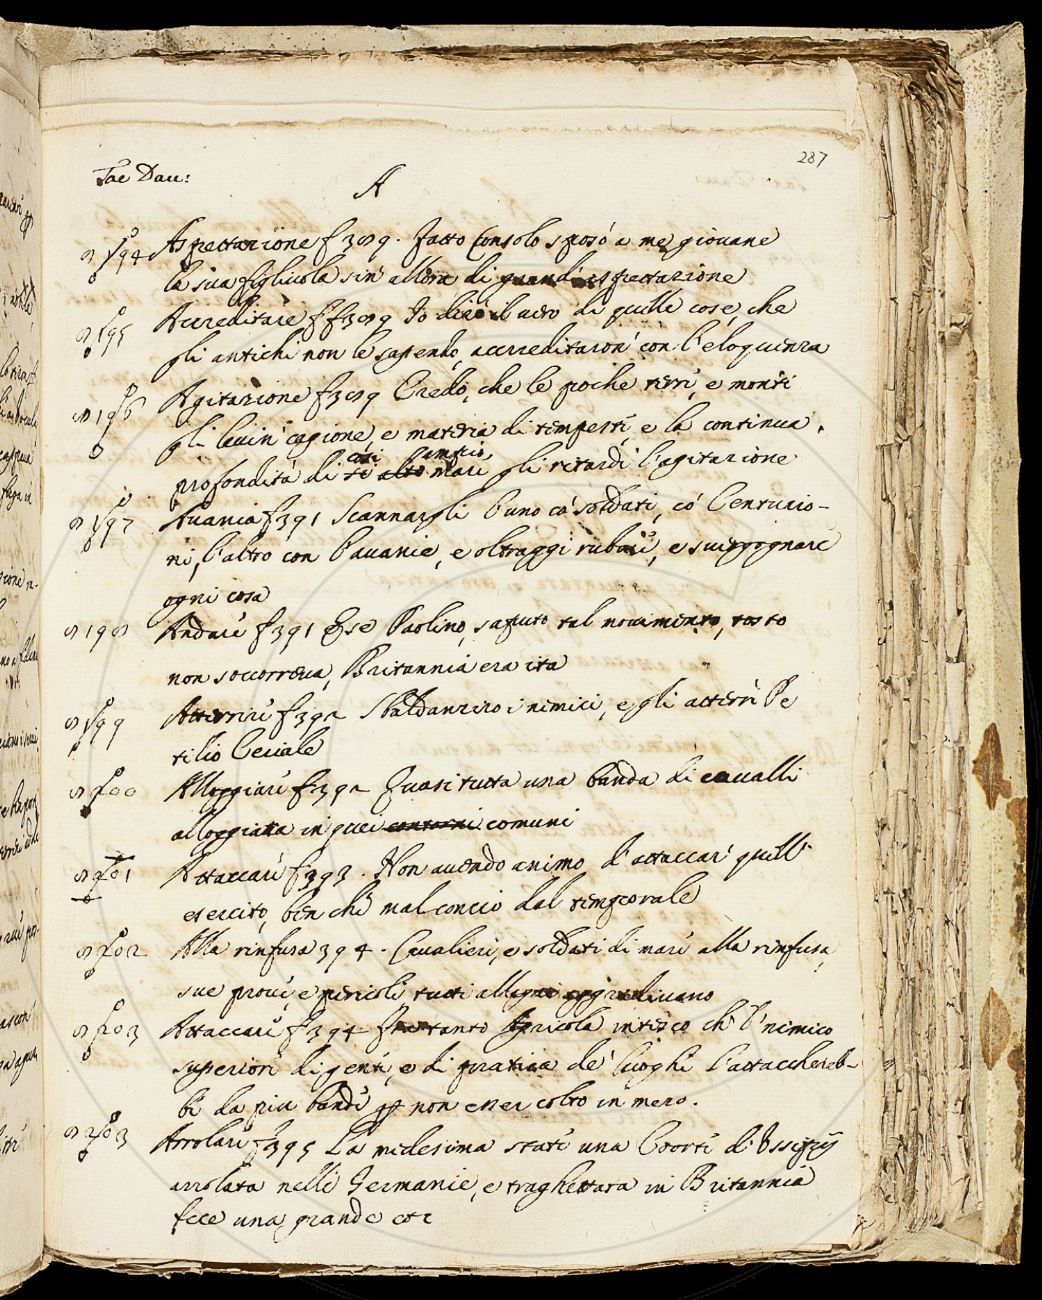 287
Tac Dau:
A
8194 Aspettazione f 389. Fatto Consolo sposò a me giovane
la sua figliuola sin' allora di grand' espettazione
8195 Accreditare f 389 Io dirò il vero di quelle cose, che
gli antichi non le sapendo, accreditaron' con l'eloquenza
8196 Agitazione f 389 Credo, che le poche terre, e monti
gli levin' cagione, e materia di tempeste, e la continua
così ampio,
profondità di sì alto mare gli ritardi l'agitazione
8197 Avania f 391 Scannargli l'uno co' soldati, co' Centurio-
ni, l'altro con l'avanie, e oltraggi rubare, e svergognare
ogni cosa
8198 Andare f 391 E se Paolino, saputo tal movimento, tosto
non soccorreva, Britannia era ita
8199 Atterrire f 392 Sbaldanziro i nemici, e gli atterrì Pe
tilio Ceriale
8200 Alloggiare f 392 Quasi tutta una banda di cavalli
alloggiata in quei comuni
8201 Attaccare f 393. Non avendo animo d'attaccare quell'
esercito, ben che mal concio dal temporale
8202 Alla rinfusa 394. Cavalieri, e soldati di mare alla rinfusa,
sue prove, e pericoli tutti allegri
8203 Attaccare f 394 Agricola inteso che 'l nimico
superiore di gente, e di pratica de' luoghi l'attacchereb-
be da più bande p non esser colto in mezo.
8203 Arrolare f 395 La medesima state una Coorte d'Issipii
arrolata nelle Germanie, e traghettata in Britannia
fece una grande etc